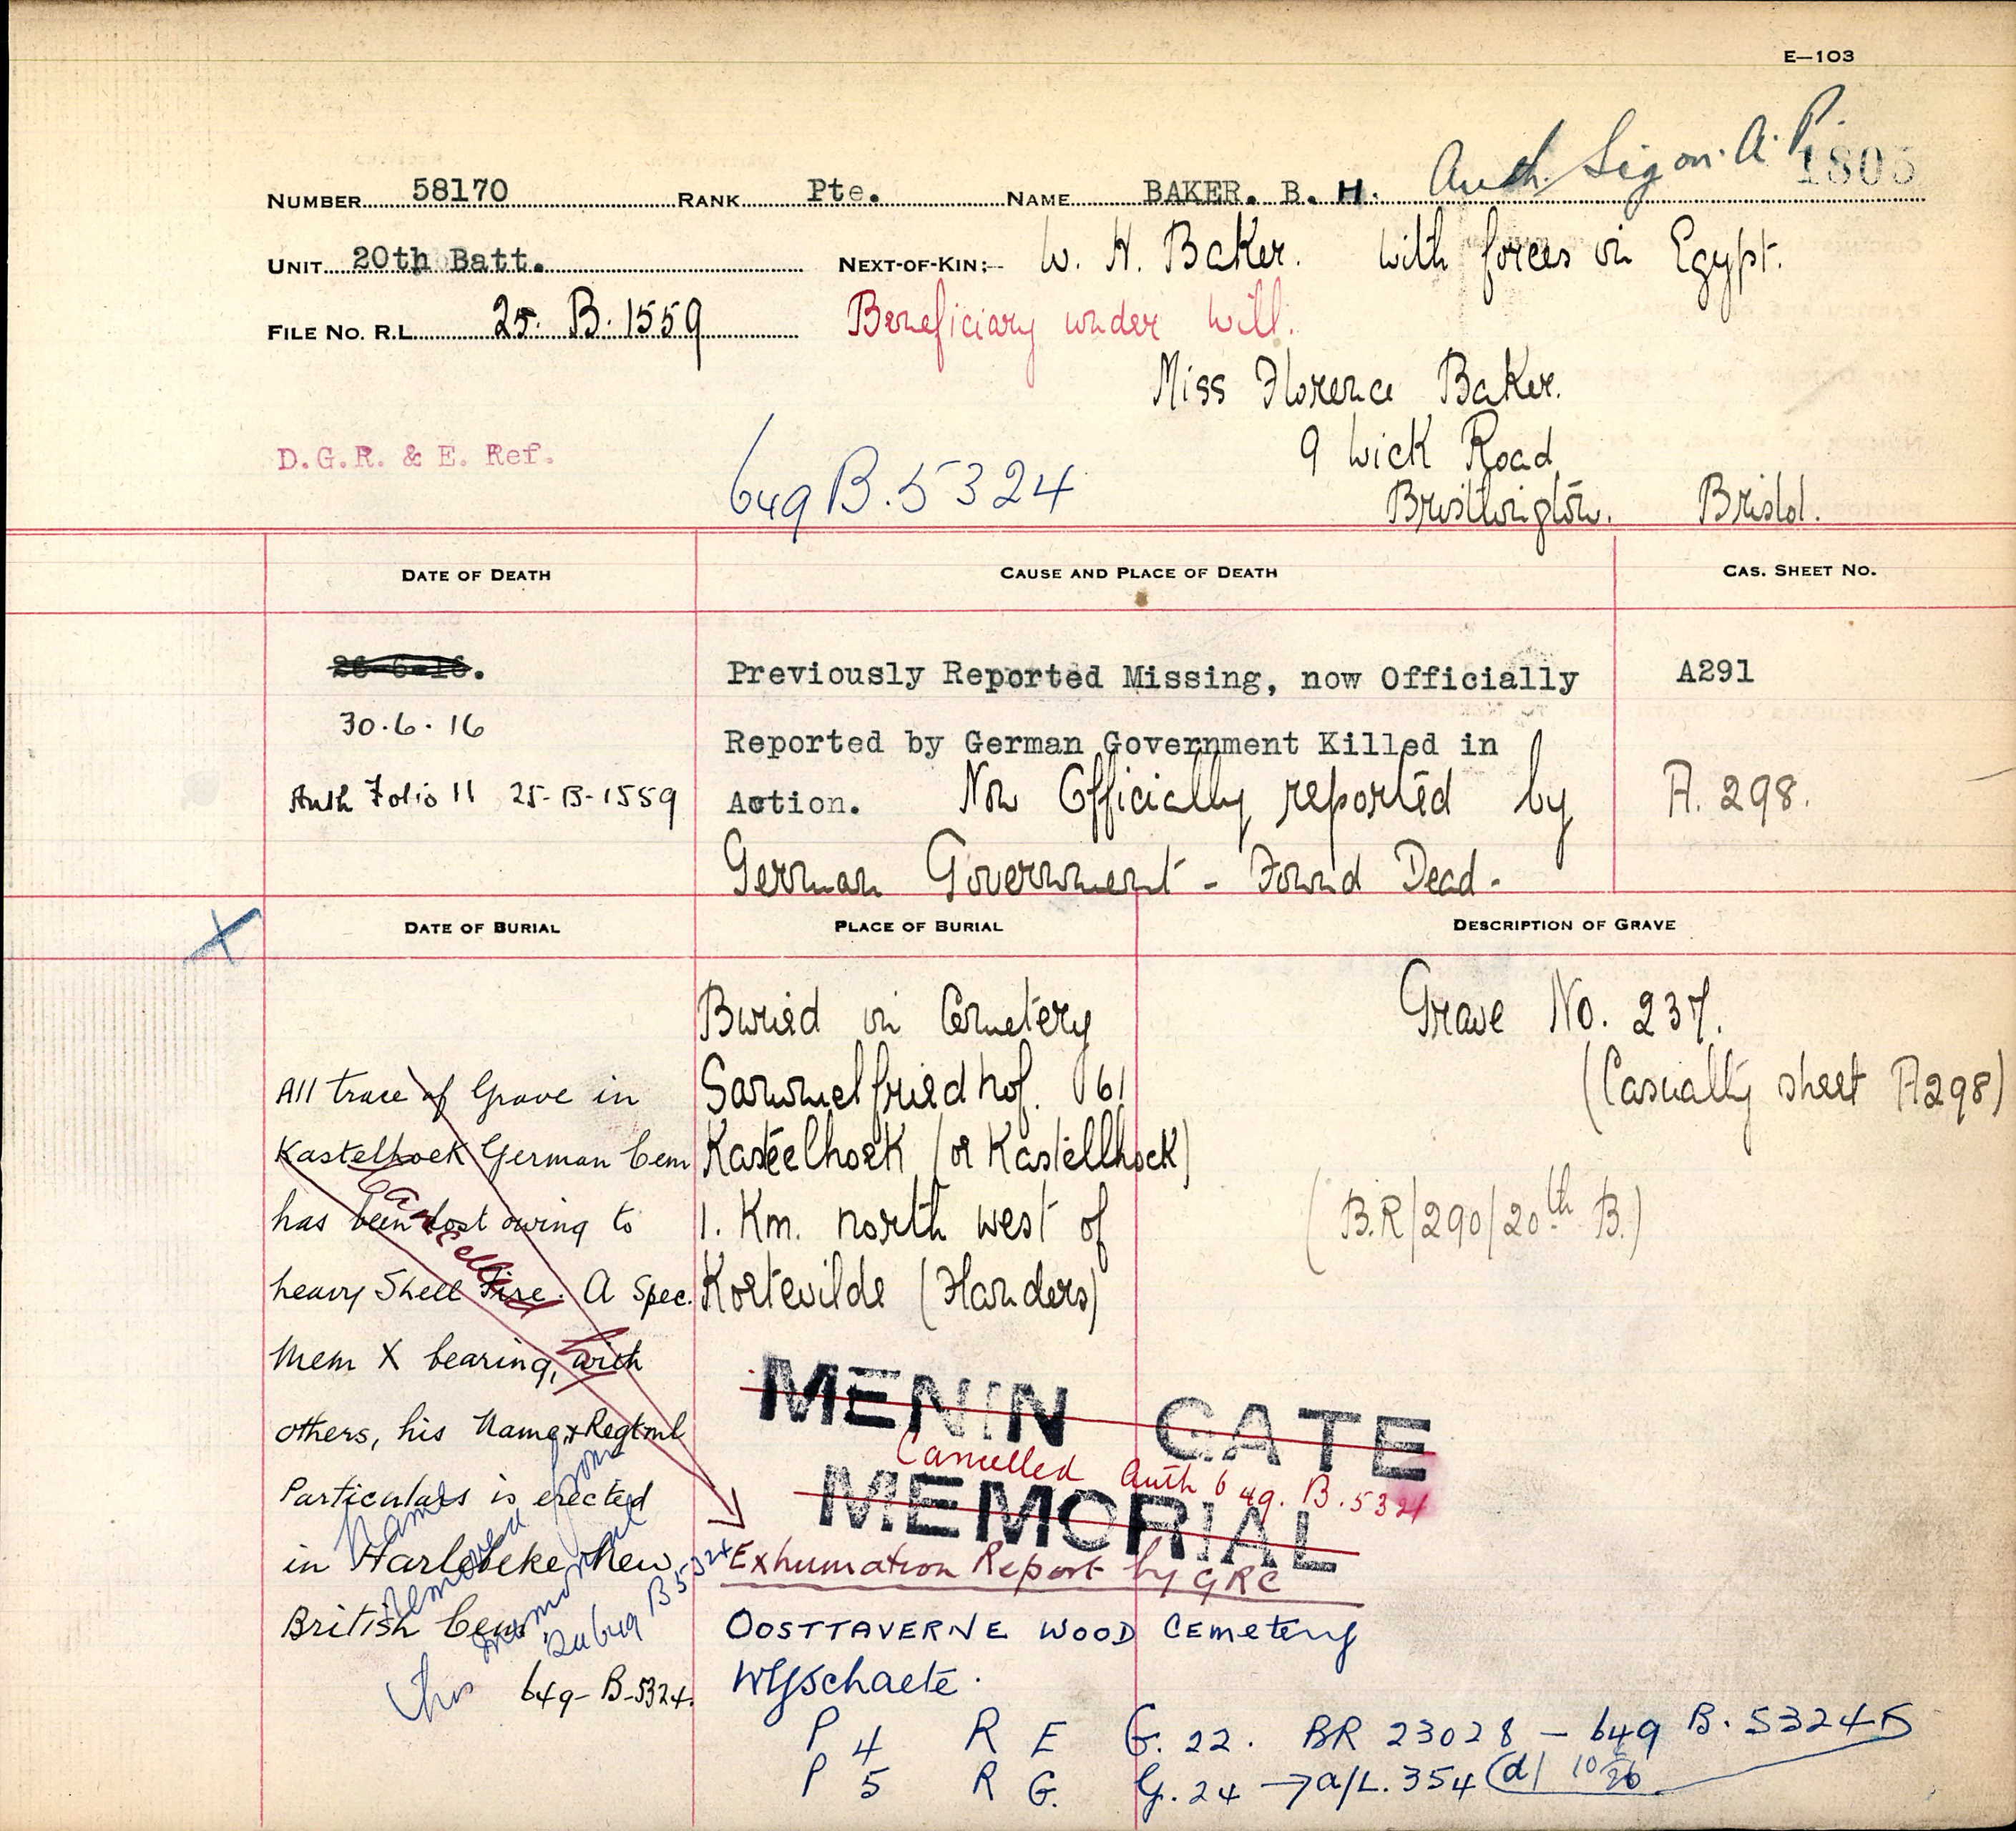 E—103
Auth. Sig on. A. P.
1805
NUMBER 58170 RANK Pte. NAME BAKER. B. H.
UNIT 20th Batt. NEXT-OF-KIN:- W. H. Baker. With forces in Egypt.
FILE No. R.L. 25. B. 1559 Beneficiary under Will.
Miss Florence Baker.
9 Wick Road
D.G.R. & E. Ref. 649 B. 5324
Brislington. Bristol.
DATE OF DEATH CAUSE AND PLACE OF DEATH CAS. SHEET NO.
26-6-16. Previously Reported Missing, now Officially A291
30.6.16 Reported by German Government Killed in
Auth Folio 11 25-B-1559 Action. Now Officially reported by A. 298.
German Government - Found Dead.
X DATE OF BURIAL PLACE OF BURIAL DESCRIPTION OF GRAVE
Buried in Cemetery Grave No. 237.
All trace of Grave in Sammelfriedhof. 61 (Casualty sheet A298)
Kastelhoek German Cem Kasteelhoek (or Kastellhoek)
has been lost owing to 1. Km. north west of (B.R/290/20th B.)
heavy Shell Fire. A Spec. Kortewilde (Flanders)
Cancelled
Mem X bearing, with MENIN GATE
others, his Name & Regtml Cancelled Auth 649. B. 5324
Particulars is erected MEMORIAL
in Harlebeke New Exhumation Report by GRC
British Cem. OOSTTAVERNE WOOD Cemetery
649-B-5324. Wytschaete.
Name removed from
this memorial
649 B5324
P 4 R E G. 22. BR 23028 — 649 B. 5324B
P 5 R G. G. 24 → a/L. 354 (d) 10/26